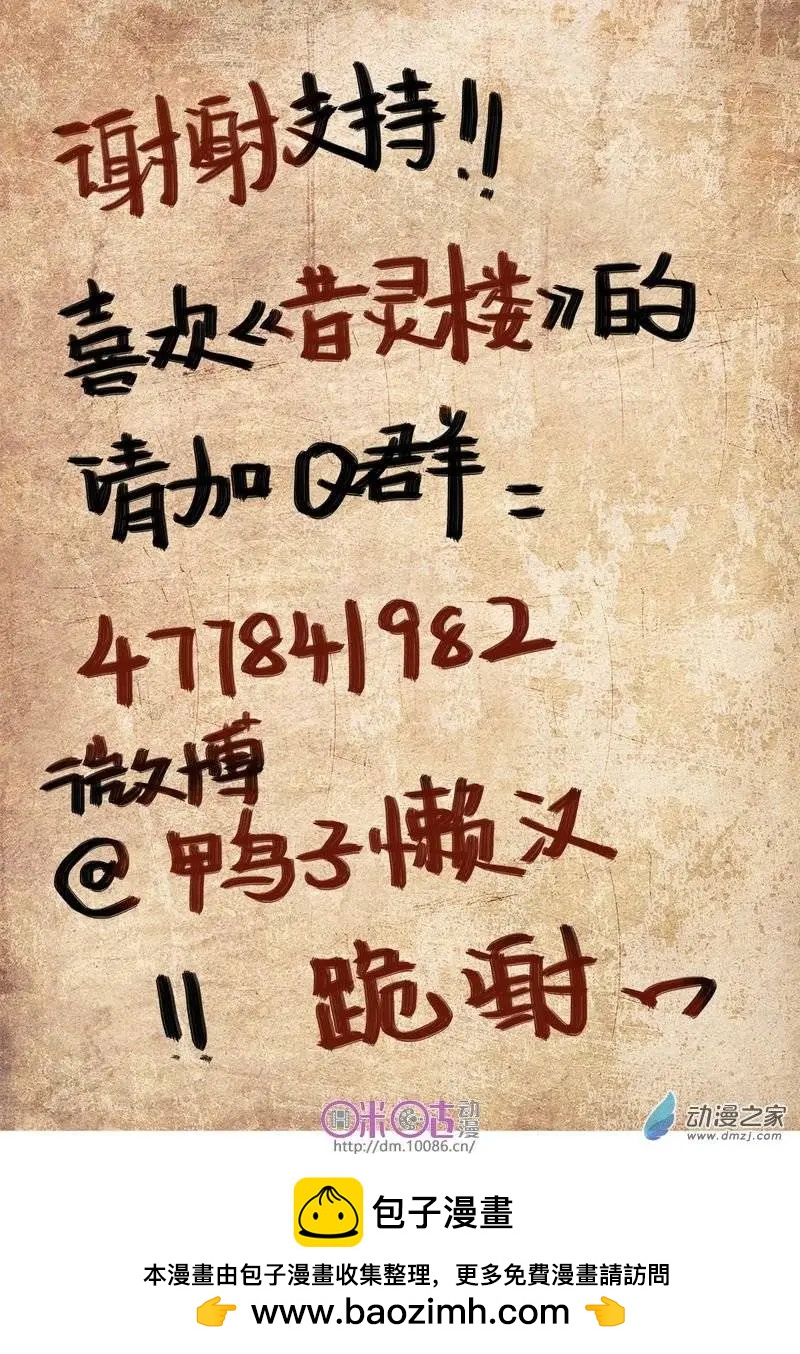 谢谢支持!!
喜欢《昔灵楼》的
请加Q群=
477841982
微博
@鸭子懒汉
!! 跪谢~
咪咕动漫
http://dm.10086.cn/
动漫之家
www.dmzj.com
包子漫畫
本漫畫由包子漫畫收集整理，更多免費漫畫請訪問
👉 www.baozimh.com 👈